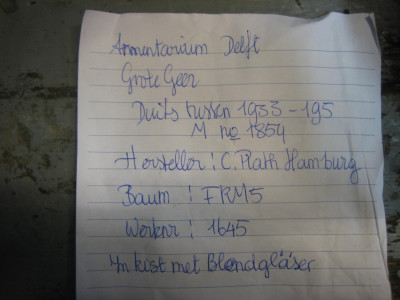 Armentarium Delft
Grote Geer
Duits tussen 1933-195
M no 1854
Hersteller: C. Plath Hamburg
Baum: FRM5
Werknr: 1645
In kist met Blendgläser